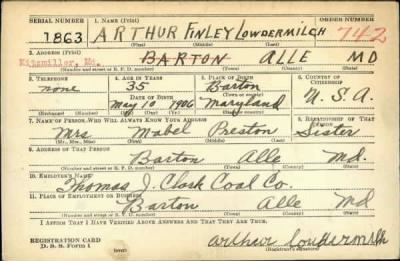 SERIAL NUMBER 1. NAME (Print) ORDER NUMBER
1863 ARTHUR FINLEY LOWDERMILCH 742
(First) (Middle) (Last)
2. ADDRESS (Print)
Kitzmiller, Md. BARTON ALLE MD
(Number and street or R. F. D. number) (Town) (County) (State)
3. TELEPHONE 4. AGE IN YEARS 5. PLACE OF BIRTH 6. COUNTRY OF CITIZENSHIP
none 35 Barton
DATE OF BIRTH (Town or county)
May 10 1906 Maryland U.S.A.
(Mo.) (Day) (Yr.) (State or country)
7. NAME OF PERSON WHO WILL ALWAYS KNOW YOUR ADDRESS 8. RELATIONSHIP OF THAT PERSON
Mrs Mabel Preston Sister
(Mr., Mrs., Miss) (First) (Middle) (Last)
9. ADDRESS OF THAT PERSON
Barton Alle Md.
(Number and street or R. F. D. number) (Town) (County) (State)
10. EMPLOYER'S NAME
Thomas J. Clark Coal Co.
11. PLACE OF EMPLOYMENT OR BUSINESS
Barton Alle Md
(Number and street or R. F. D. number) (Town) (County) (State)
I AFFIRM THAT I HAVE VERIFIED ABOVE ANSWERS AND THAT THEY ARE TRUE.
REGISTRATION CARD
D. S. S. Form 1 (over) arthur loudermilch
(Registrant's signature)